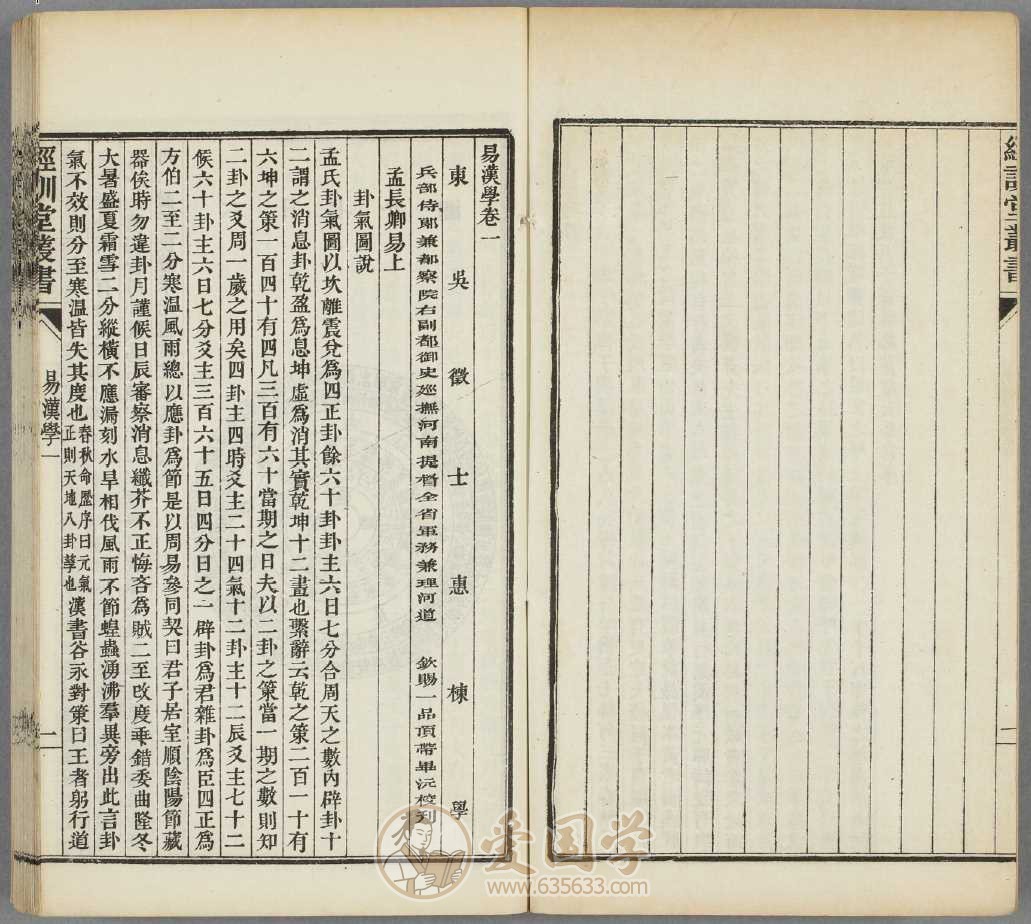 經訓堂叢書
易漢學卷一
東吳徵士惠棟學
兵部侍郎兼都察院右副都御史巡撫河南提督全省軍務兼理河道 欽賜一品頂帶畢沅校刊
孟長卿易上
卦氣圖說
孟氏卦氣圖以坎離震兌爲四正卦餘六十卦卦主六日七分合周天之數內辟卦十
二謂之消息卦乾盈爲息坤虛爲消其實乾坤十二畫也繫辭云乾之策二百一十有
六坤之策一百四十有四凡三百有六十當期之日夫以二卦之策當一期之數則知
二卦之爻周一歲之用矣四卦主四時爻主二十四氣十二卦主十二辰爻主七十二
候六十卦主六日七分爻主三百六十五日四分日之一辟卦爲君雜卦爲臣四正爲
方伯二至二分寒溫風雨總以應卦爲節是以周易參同契曰君子居室順陰陽節藏
器俟時勿違卦月謹候日辰審察消息纖芥不正悔吝爲賊二至改度乖錯委曲隆冬
大暑盛夏霜雪二分縱橫不應漏刻水旱相伐風雨不節蝗蟲湧沸羣異旁出此言卦
氣不效則分至寒溫皆失其度也春秋命歷序曰元氣正則天地八卦孳也漢書谷永對策曰王者躬行道
經訓堂叢書
易漢學一
一
爱国学
www.635633.com